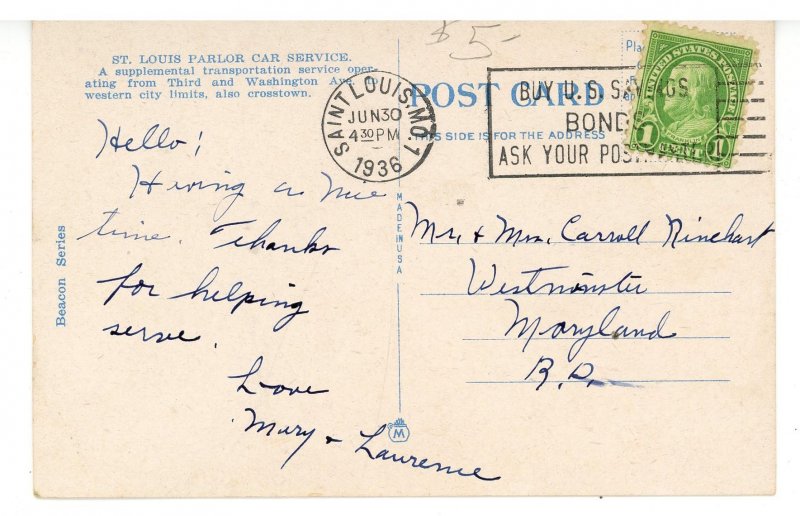 $5-
ST. LOUIS PARLOR CAR SERVICE.
A supplemental transportation service oper-
ating from Third and Washington Ave. to
western city limits, also crosstown.
Hello!
Having a nice
time. Thanks
for helping
serve.
Love
Mary & Laurence
Beacon Series
MADE IN USA
M
POST CARD
THIS SIDE IS FOR THE ADDRESS
Pla
SAINT LOUIS, MO. 1
JUN 30
4 30 PM
1936
BUY U.S. SAVINGS
BOND
ASK YOUR POST
UNITED STATES POSTAGE
1 1
CENT
Mr. & Mrs. Carroll Rinehart
Westminster
Maryland
R.D.